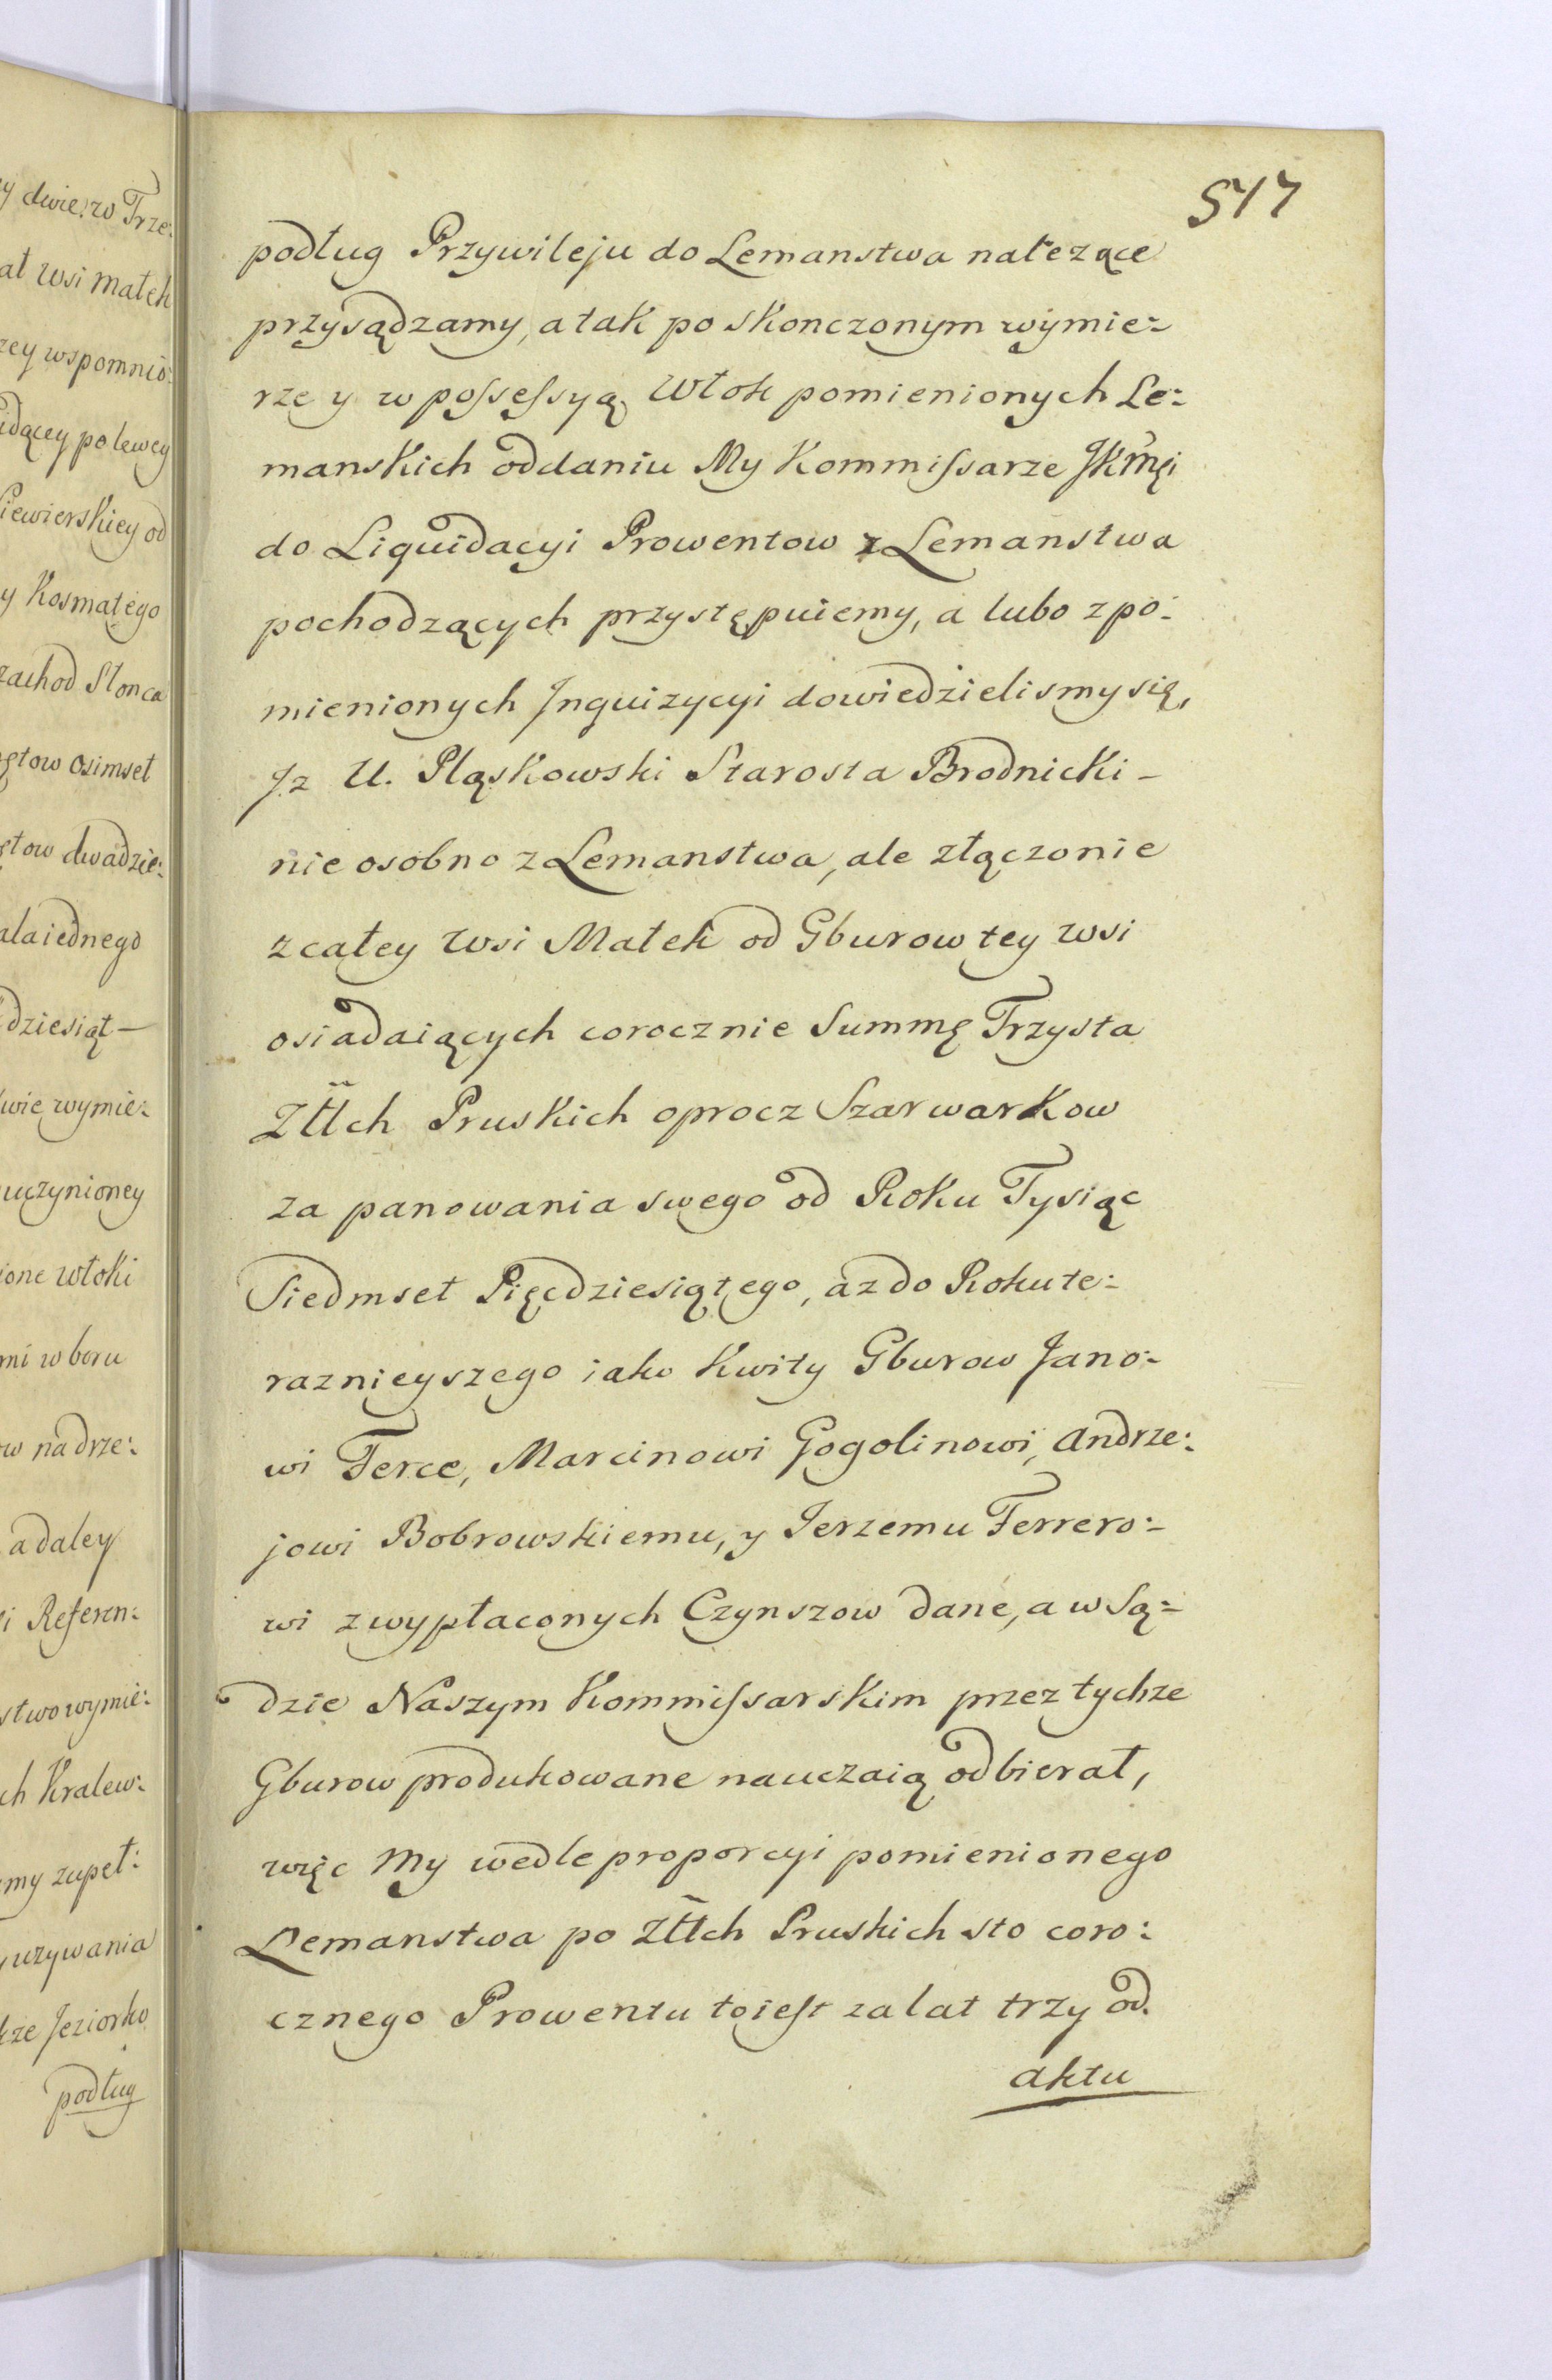 y dwie, w Trze:
at wsi Małek
zey wspomnio:
idącey po lewey
Siewierskiey od
y Kosmatego
zachod Słonca
ętow osimset
ętow dwadzie:
ala iednego
dziesiąt —
wie wymie:
uczynioney
ione włoki
mi w boru
ow na drze:
a daley
i Referen:
stwo wymie:
ch Kralew:
my zupeł:
uzywania
kze Jeziorko
podług
517
podług Przywileju do Lemanstwa nalezące
przysądzamy, a tak po skonczonym wymie:
rze y w possessyą Włok pomienionych Le:
manskich oddaniu My Kommissarze JKMçi
do Liquidacyi Prowentow z Lemanstwa
pochodzących przystępuiemy, a lubo z po:
mienionych Inquizycyi dowiedzielismy się,
Jz U. Pląskowski Starosta Brodnicki –
nie osobno z Lemanstwa, ale złączonie
z całey wsi Małek od Gburow tey wsi
osiadaiących corocznie Summę Trzysta
Złłch Pruskich oprocz Szarwarkow
za panowania swego od Roku Tysiąc
Siedmset Pięcdziesiątego, az do Roku te:
raznieyszego iako Kwity Gburow Jano:
wi Ferce, Marcinowi Gogolinowi, Andrze:
jowi Bobrowskiemu, y Jerzemu Ferrero:
wi z wypłaconych Czynszow dane, a w Są:
dzie Naszym Kommissarskim przez tychze
Gburow produkowane nauczaią odbierał,
więc My wedle proporcyi pomienionego
Lemanstwa po Złłch Pruskich sto coro:
cznego Prowentu to iest za lat trzy od
aktu